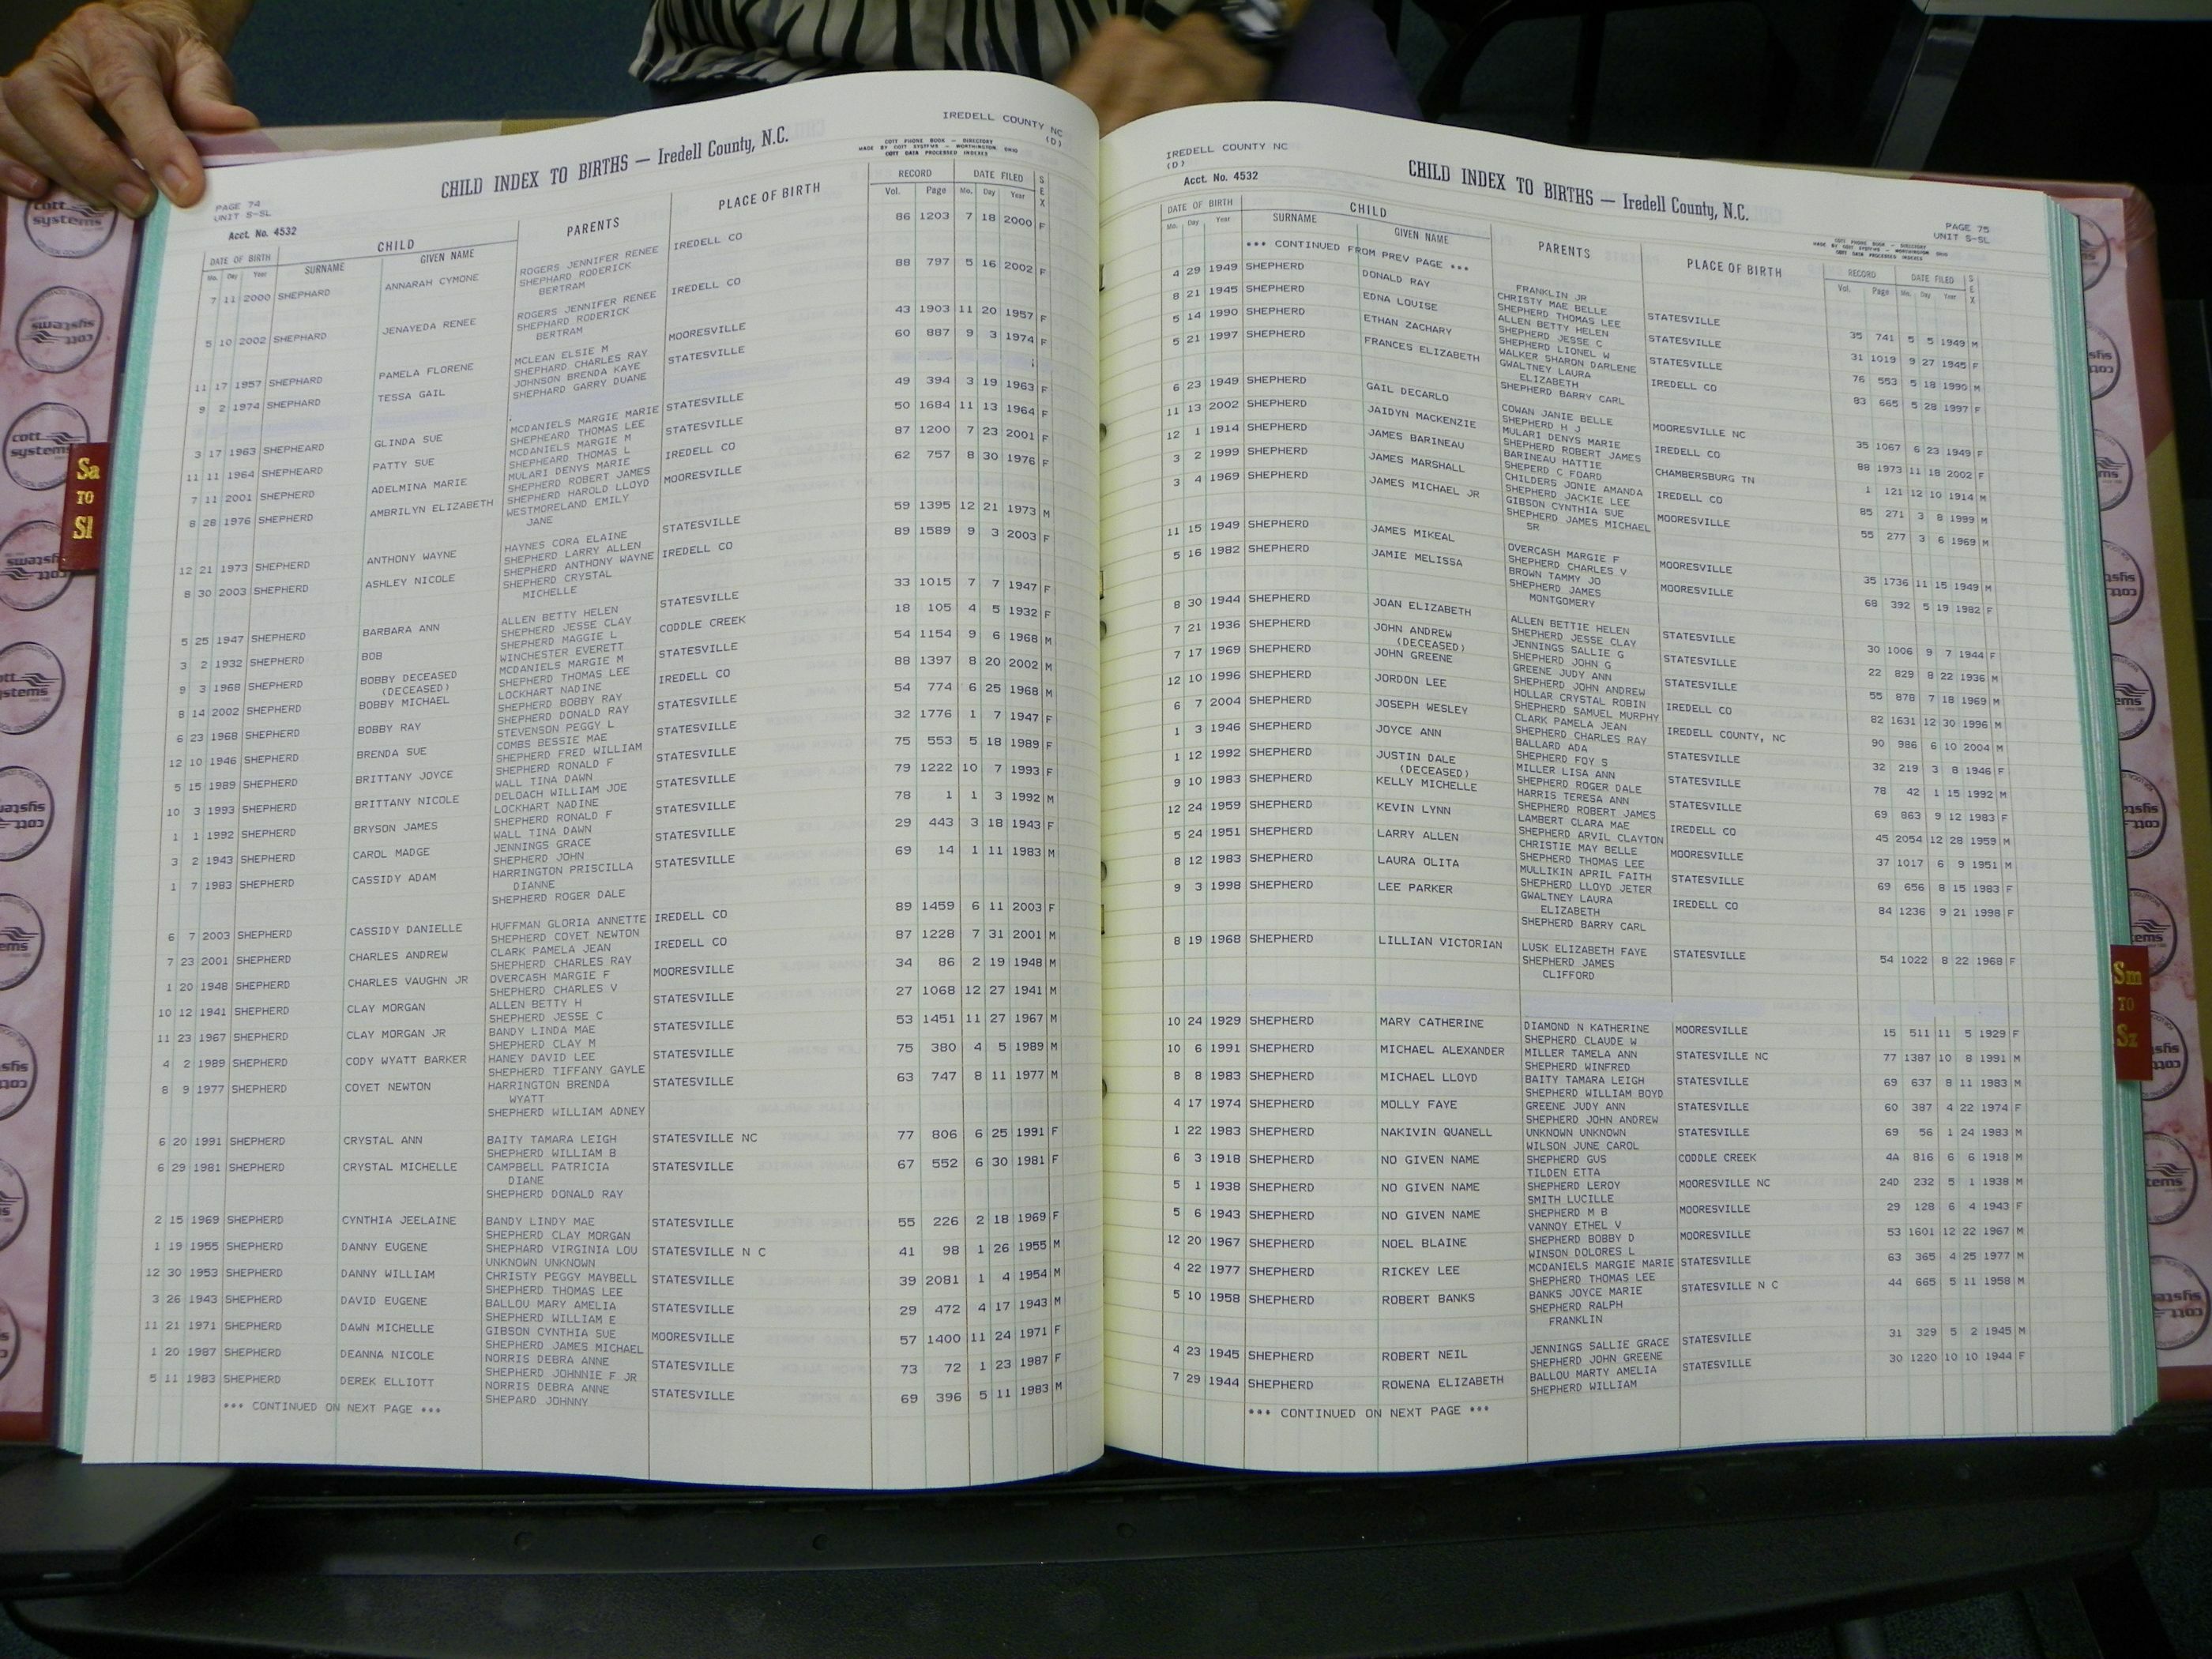 IREDELL COUNTY NC
(D)
COTT PHONE BOOK — DIRECTORY
MADE BY COTT SYSTEMS — WORTHINGTON OHIO
COTT DATA PROCESSED INDEXES
CHILD INDEX TO BIRTHS — Iredell County, N.C.
PAGE 74
UNIT S-SL
Acct. No. 4532
DATE OF BIRTH CHILD PARENTS PLACE OF BIRTH RECORD DATE FILED SEX
Mo. Day Year SURNAME GIVEN NAME Vol. Page Mo. Day Year
7 11 2000 SHEPHARD ANNARAH CYMONE ROGERS JENNIFER RENEE IREDELL CO 86 1203 7 18 2000 F
SHEPHARD RODERICK
BERTRAM
5 10 2002 SHEPHARD JENAYEDA RENEE ROGERS JENNIFER RENEE IREDELL CO 88 797 5 16 2002 F
SHEPHARD RODERICK
BERTRAM
11 17 1957 SHEPHARD PAMELA FLORENE MCLEAN ELSIE M MOORESVILLE 43 1903 11 20 1957 F
SHEPHARD CHARLES RAY
9 2 1974 SHEPHARD TESSA GAIL JOHNSON BRENDA KAYE STATESVILLE 60 887 9 3 1974 F
SHEPHARD GARRY DUANE
3 17 1963 SHEPHEARD GLINDA SUE MCDANIELS MARGIE MARIE STATESVILLE 49 394 3 19 1963 F
SHEPHEARD THOMAS LEE
11 11 1964 SHEPHEARD PATTY SUE MCDANIELS MARGIE M STATESVILLE 50 1684 11 13 1964 F
SHEPHEARD THOMAS L
7 11 2001 SHEPHERD ADELMINA MARIE MULARI DENYS MARIE IREDELL CO 87 1200 7 23 2001 F
SHEPHERD ROBERT JAMES
8 28 1976 SHEPHERD AMBRILYN ELIZABETH SHEPHERD HAROLD LLOYD MOORESVILLE 62 757 8 30 1976 F
WESTMORELAND EMILY
JANE
12 21 1973 SHEPHERD ANTHONY WAYNE HAYNES CORA ELAINE STATESVILLE 59 1395 12 21 1973 M
SHEPHERD LARRY ALLEN
8 30 2003 SHEPHERD ASHLEY NICOLE SHEPHERD ANTHONY WAYNE IREDELL CO 89 1589 9 3 2003 F
SHEPHERD CRYSTAL
MICHELLE
5 25 1947 SHEPHERD BARBARA ANN ALLEN BETTY HELEN STATESVILLE 33 1015 7 7 1947 F
SHEPHERD JESSE CLAY
3 2 1932 SHEPHERD BOB SHEPHERD MAGGIE L CODDLE CREEK 18 105 4 5 1932 F
WINCHESTER EVERETT
9 3 1968 SHEPHERD BOBBY DECEASED MCDANIELS MARGIE M STATESVILLE 54 1154 9 6 1968 M
(DECEASED) SHEPHERD THOMAS LEE
8 14 2002 SHEPHERD BOBBY MICHAEL LOCKHART NADINE IREDELL CO 88 1397 8 20 2002 M
SHEPHERD BOBBY RAY
6 23 1968 SHEPHERD BOBBY RAY SHEPHERD DONALD RAY STATESVILLE 54 774 6 25 1968 M
STEVENSON PEGGY L
12 10 1946 SHEPHERD BRENDA SUE COMBS BESSIE MAE STATESVILLE 32 1776 1 7 1947 F
SHEPHERD FRED WILLIAM
5 15 1989 SHEPHERD BRITTANY JOYCE SHEPHERD RONALD F STATESVILLE 75 553 5 18 1989 F
WALL TINA DAWN
10 3 1993 SHEPHERD BRITTANY NICOLE DELOACH WILLIAM JOE STATESVILLE 79 1222 10 7 1993 F
LOCKHART NADINE
1 1 1992 SHEPHERD BRYSON JAMES SHEPHERD RONALD F STATESVILLE 78 1 1 3 1992 M
WALL TINA DAWN
3 2 1943 SHEPHERD CAROL MADGE JENNINGS GRACE STATESVILLE 29 443 3 18 1943 F
SHEPHERD JOHN
1 7 1983 SHEPHERD CASSIDY ADAM HARRINGTON PRISCILLA STATESVILLE 69 14 1 11 1983 M
DIANNE
SHEPHERD ROGER DALE
6 7 2003 SHEPHERD CASSIDY DANIELLE HUFFMAN GLORIA ANNETTE IREDELL CO 89 1459 6 11 2003 F
SHEPHERD COYET NEWTON
7 23 2001 SHEPHERD CHARLES ANDREW CLARK PAMELA JEAN IREDELL CO 87 1228 7 31 2001 M
SHEPHERD CHARLES RAY
1 20 1948 SHEPHERD CHARLES VAUGHN JR OVERCASH MARGIE F MOORESVILLE 34 86 2 19 1948 M
SHEPHERD CHARLES V
10 12 1941 SHEPHERD CLAY MORGAN ALLEN BETTY H STATESVILLE 27 1068 12 27 1941 M
SHEPHERD JESSE C
11 23 1967 SHEPHERD CLAY MORGAN JR BANDY LINDA MAE STATESVILLE 53 1451 11 27 1967 M
SHEPHERD CLAY M
4 2 1989 SHEPHERD CODY WYATT BARKER HANEY DAVID LEE STATESVILLE 75 380 4 5 1989 M
SHEPHERD TIFFANY GAYLE
8 9 1977 SHEPHERD COYET NEWTON HARRINGTON BRENDA STATESVILLE 63 747 8 11 1977 M
WYATT
SHEPHERD WILLIAM ADNEY
6 20 1991 SHEPHERD CRYSTAL ANN BAITY TAMARA LEIGH STATESVILLE NC 77 806 6 25 1991 F
SHEPHERD WILLIAM B
6 29 1981 SHEPHERD CRYSTAL MICHELLE CAMPBELL PATRICIA STATESVILLE 67 552 6 30 1981 F
DIANE
SHEPHERD DONALD RAY
2 15 1969 SHEPHERD CYNTHIA JEELAINE BANDY LINDY MAE STATESVILLE 55 226 2 18 1969 F
SHEPHERD CLAY MORGAN
1 19 1955 SHEPHERD DANNY EUGENE SHEPHARD VIRGINIA LOU STATESVILLE N C 41 98 1 26 1955 M
UNKNOWN UNKNOWN
12 30 1953 SHEPHERD DANNY WILLIAM CHRISTY PEGGY MAYBELL STATESVILLE 39 2081 1 4 1954 M
SHEPHERD THOMAS LEE
3 26 1943 SHEPHERD DAVID EUGENE BALLOU MARY AMELIA STATESVILLE 29 472 4 17 1943 M
SHEPHERD WILLIAM E
11 21 1971 SHEPHERD DAWN MICHELLE GIBSON CYNTHIA SUE MOORESVILLE 57 1400 11 24 1971 F
SHEPHERD JAMES MICHAEL
1 20 1987 SHEPHERD DEANNA NICOLE NORRIS DEBRA ANNE STATESVILLE 73 72 1 23 1987 F
SHEPHERD JOHNNIE F JR
5 11 1983 SHEPHERD DEREK ELLIOTT NORRIS DEBRA ANNE STATESVILLE 69 396 5 11 1983 M
SHEPARD JOHNNY
*** CONTINUED ON NEXT PAGE ***
IREDELL COUNTY NC
(D)
Acct. No. 4532
CHILD INDEX TO BIRTHS — Iredell County, N.C.
PAGE 75
UNIT S-SL
COTT PHONE BOOK — DIRECTORY
MADE BY COTT SYSTEMS — WORTHINGTON OHIO
COTT DATA PROCESSED INDEXES
DATE OF BIRTH CHILD PARENTS PLACE OF BIRTH RECORD DATE FILED SEX
Mo. Day Year SURNAME GIVEN NAME Vol. Page Mo. Day Year
*** CONTINUED FROM PREV PAGE ***
FRANKLIN JR
4 29 1949 SHEPHERD DONALD RAY CHRISTY MAE BELLE STATESVILLE 35 741 5 5 1949 M
SHEPHERD THOMAS LEE
8 21 1945 SHEPHERD EDNA LOUISE ALLEN BETTY HELEN STATESVILLE 31 1019 9 27 1945 F
SHEPHERD JESSE C
5 14 1990 SHEPHERD ETHAN ZACHARY SHEPHERD LIONEL W IREDELL CO 76 553 5 18 1990 M
WALKER SHARON DARLENE
5 21 1997 SHEPHERD FRANCES ELIZABETH GWALTNEY LAURA 83 665 5 28 1997 F
ELIZABETH
SHEPHERD BARRY CARL
6 23 1949 SHEPHERD GAIL DECARLO COWAN JANIE BELLE MOORESVILLE NC 35 1067 6 23 1949 F
SHEPHERD H J
11 13 2002 SHEPHERD JAIDYN MACKENZIE MULARI DENYS MARIE IREDELL CO 88 1973 11 18 2002 F
SHEPHERD ROBERT JAMES
12 1 1914 SHEPHERD JAMES BARINEAU BARINEAU HATTIE CHAMBERSBURG TN 1 121 12 10 1914 M
SHEPERD C FOARD
3 2 1999 SHEPHERD JAMES MARSHALL CHILDERS JONIE AMANDA IREDELL CO 85 271 3 8 1999 M
SHEPHERD JACKIE LEE
3 4 1969 SHEPHERD JAMES MICHAEL JR GIBSON CYNTHIA SUE MOORESVILLE 55 277 3 6 1969 M
SHEPHERD JAMES MICHAEL
SR
11 15 1949 SHEPHERD JAMES MIKEAL OVERCASH MARGIE F MOORESVILLE 35 1736 11 15 1949 M
SHEPHERD CHARLES V
5 16 1982 SHEPHERD JAMIE MELISSA BROWN TAMMY JO MOORESVILLE 68 392 5 19 1982 F
SHEPHERD JAMES
MONTGOMERY
8 30 1944 SHEPHERD JOAN ELIZABETH ALLEN BETTIE HELEN STATESVILLE 30 1006 9 7 1944 F
SHEPHERD JESSE CLAY
7 21 1936 SHEPHERD JOHN ANDREW JENNINGS SALLIE G STATESVILLE 22 829 8 22 1936 M
(DECEASED) SHEPHERD JOHN G
7 17 1969 SHEPHERD JOHN GREENE GREENE JUDY ANN STATESVILLE 55 878 7 18 1969 M
SHEPHERD JOHN ANDREW
12 10 1996 SHEPHERD JORDON LEE HOLLAR CRYSTAL ROBIN IREDELL CO 82 1631 12 30 1996 M
SHEPHERD SAMUEL MURPHY
6 7 2004 SHEPHERD JOSEPH WESLEY CLARK PAMELA JEAN IREDELL COUNTY, NC 90 986 6 10 2004 M
SHEPHERD CHARLES RAY
1 3 1946 SHEPHERD JOYCE ANN BALLARD ADA STATESVILLE 32 219 3 8 1946 F
SHEPHERD FOY S
1 12 1992 SHEPHERD JUSTIN DALE MILLER LISA ANN STATESVILLE 78 42 1 15 1992 M
(DECEASED) SHEPHERD ROGER DALE
9 10 1983 SHEPHERD KELLY MICHELLE HARRIS TERESA ANN STATESVILLE 69 863 9 12 1983 F
SHEPHERD ROBERT JAMES
12 24 1959 SHEPHERD KEVIN LYNN LAMBERT CLARA MAE IREDELL CO 45 2054 12 28 1959 M
SHEPHERD ARVIL CLAYTON
5 24 1951 SHEPHERD LARRY ALLEN CHRISTIE MAY BELLE MOORESVILLE 37 1017 6 9 1951 M
SHEPHERD THOMAS LEE
8 12 1983 SHEPHERD LAURA OLITA MULLIKIN APRIL FAITH STATESVILLE 69 656 8 15 1983 F
SHEPHERD LLOYD JETER
9 3 1998 SHEPHERD LEE PARKER GWALTNEY LAURA IREDELL CO 84 1236 9 21 1998 F
ELIZABETH
SHEPHERD BARRY CARL
8 19 1968 SHEPHERD LILLIAN VICTORIAN LUSK ELIZABETH FAYE STATESVILLE 54 1022 8 22 1968 F
SHEPHERD JAMES
CLIFFORD
10 24 1929 SHEPHERD MARY CATHERINE DIAMOND N KATHERINE MOORESVILLE 15 511 11 5 1929 F
SHEPHERD CLAUDE W
10 6 1991 SHEPHERD MICHAEL ALEXANDER MILLER TAMELA ANN STATESVILLE NC 77 1387 10 8 1991 M
SHEPHERD WINFRED
8 8 1983 SHEPHERD MICHAEL LLOYD BAITY TAMARA LEIGH STATESVILLE 69 637 8 11 1983 M
SHEPHERD WILLIAM BOYD
4 17 1974 SHEPHERD MOLLY FAYE GREENE JUDY ANN STATESVILLE 60 387 4 22 1974 F
SHEPHERD JOHN ANDREW
1 22 1983 SHEPHERD NAKIVIN QUANELL UNKNOWN UNKNOWN STATESVILLE 69 56 1 24 1983 M
WILSON JUNE CAROL
6 3 1918 SHEPHERD NO GIVEN NAME SHEPHERD GUS CODDLE CREEK 4A 816 6 6 1918 M
TILDEN ETTA
5 1 1938 SHEPHERD NO GIVEN NAME SHEPHERD LEROY MOORESVILLE NC 24D 232 5 1 1938 M
SMITH LUCILLE
5 6 1943 SHEPHERD NO GIVEN NAME SHEPHERD M B MOORESVILLE 29 128 6 4 1943 F
VANNOY ETHEL V
12 20 1967 SHEPHERD NOEL BLAINE SHEPHERD BOBBY D MOORESVILLE 53 1601 12 22 1967 M
WINSON DOLORES L
4 22 1977 SHEPHERD RICKEY LEE MCDANIELS MARGIE MARIE STATESVILLE 63 365 4 25 1977 M
SHEPHERD THOMAS LEE
5 10 1958 SHEPHERD ROBERT BANKS BANKS JOYCE MARIE STATESVILLE N C 44 665 5 11 1958 M
SHEPHERD RALPH
FRANKLIN
4 23 1945 SHEPHERD ROBERT NEIL JENNINGS SALLIE GRACE STATESVILLE 31 329 5 2 1945 M
SHEPHERD JOHN GREENE
7 29 1944 SHEPHERD ROWENA ELIZABETH BALLOU MARTY AMELIA STATESVILLE 30 1220 10 10 1944 F
SHEPHERD WILLIAM
*** CONTINUED ON NEXT PAGE ***
Sa
TO
Sl
Sm
TO
Sz
cott
systems